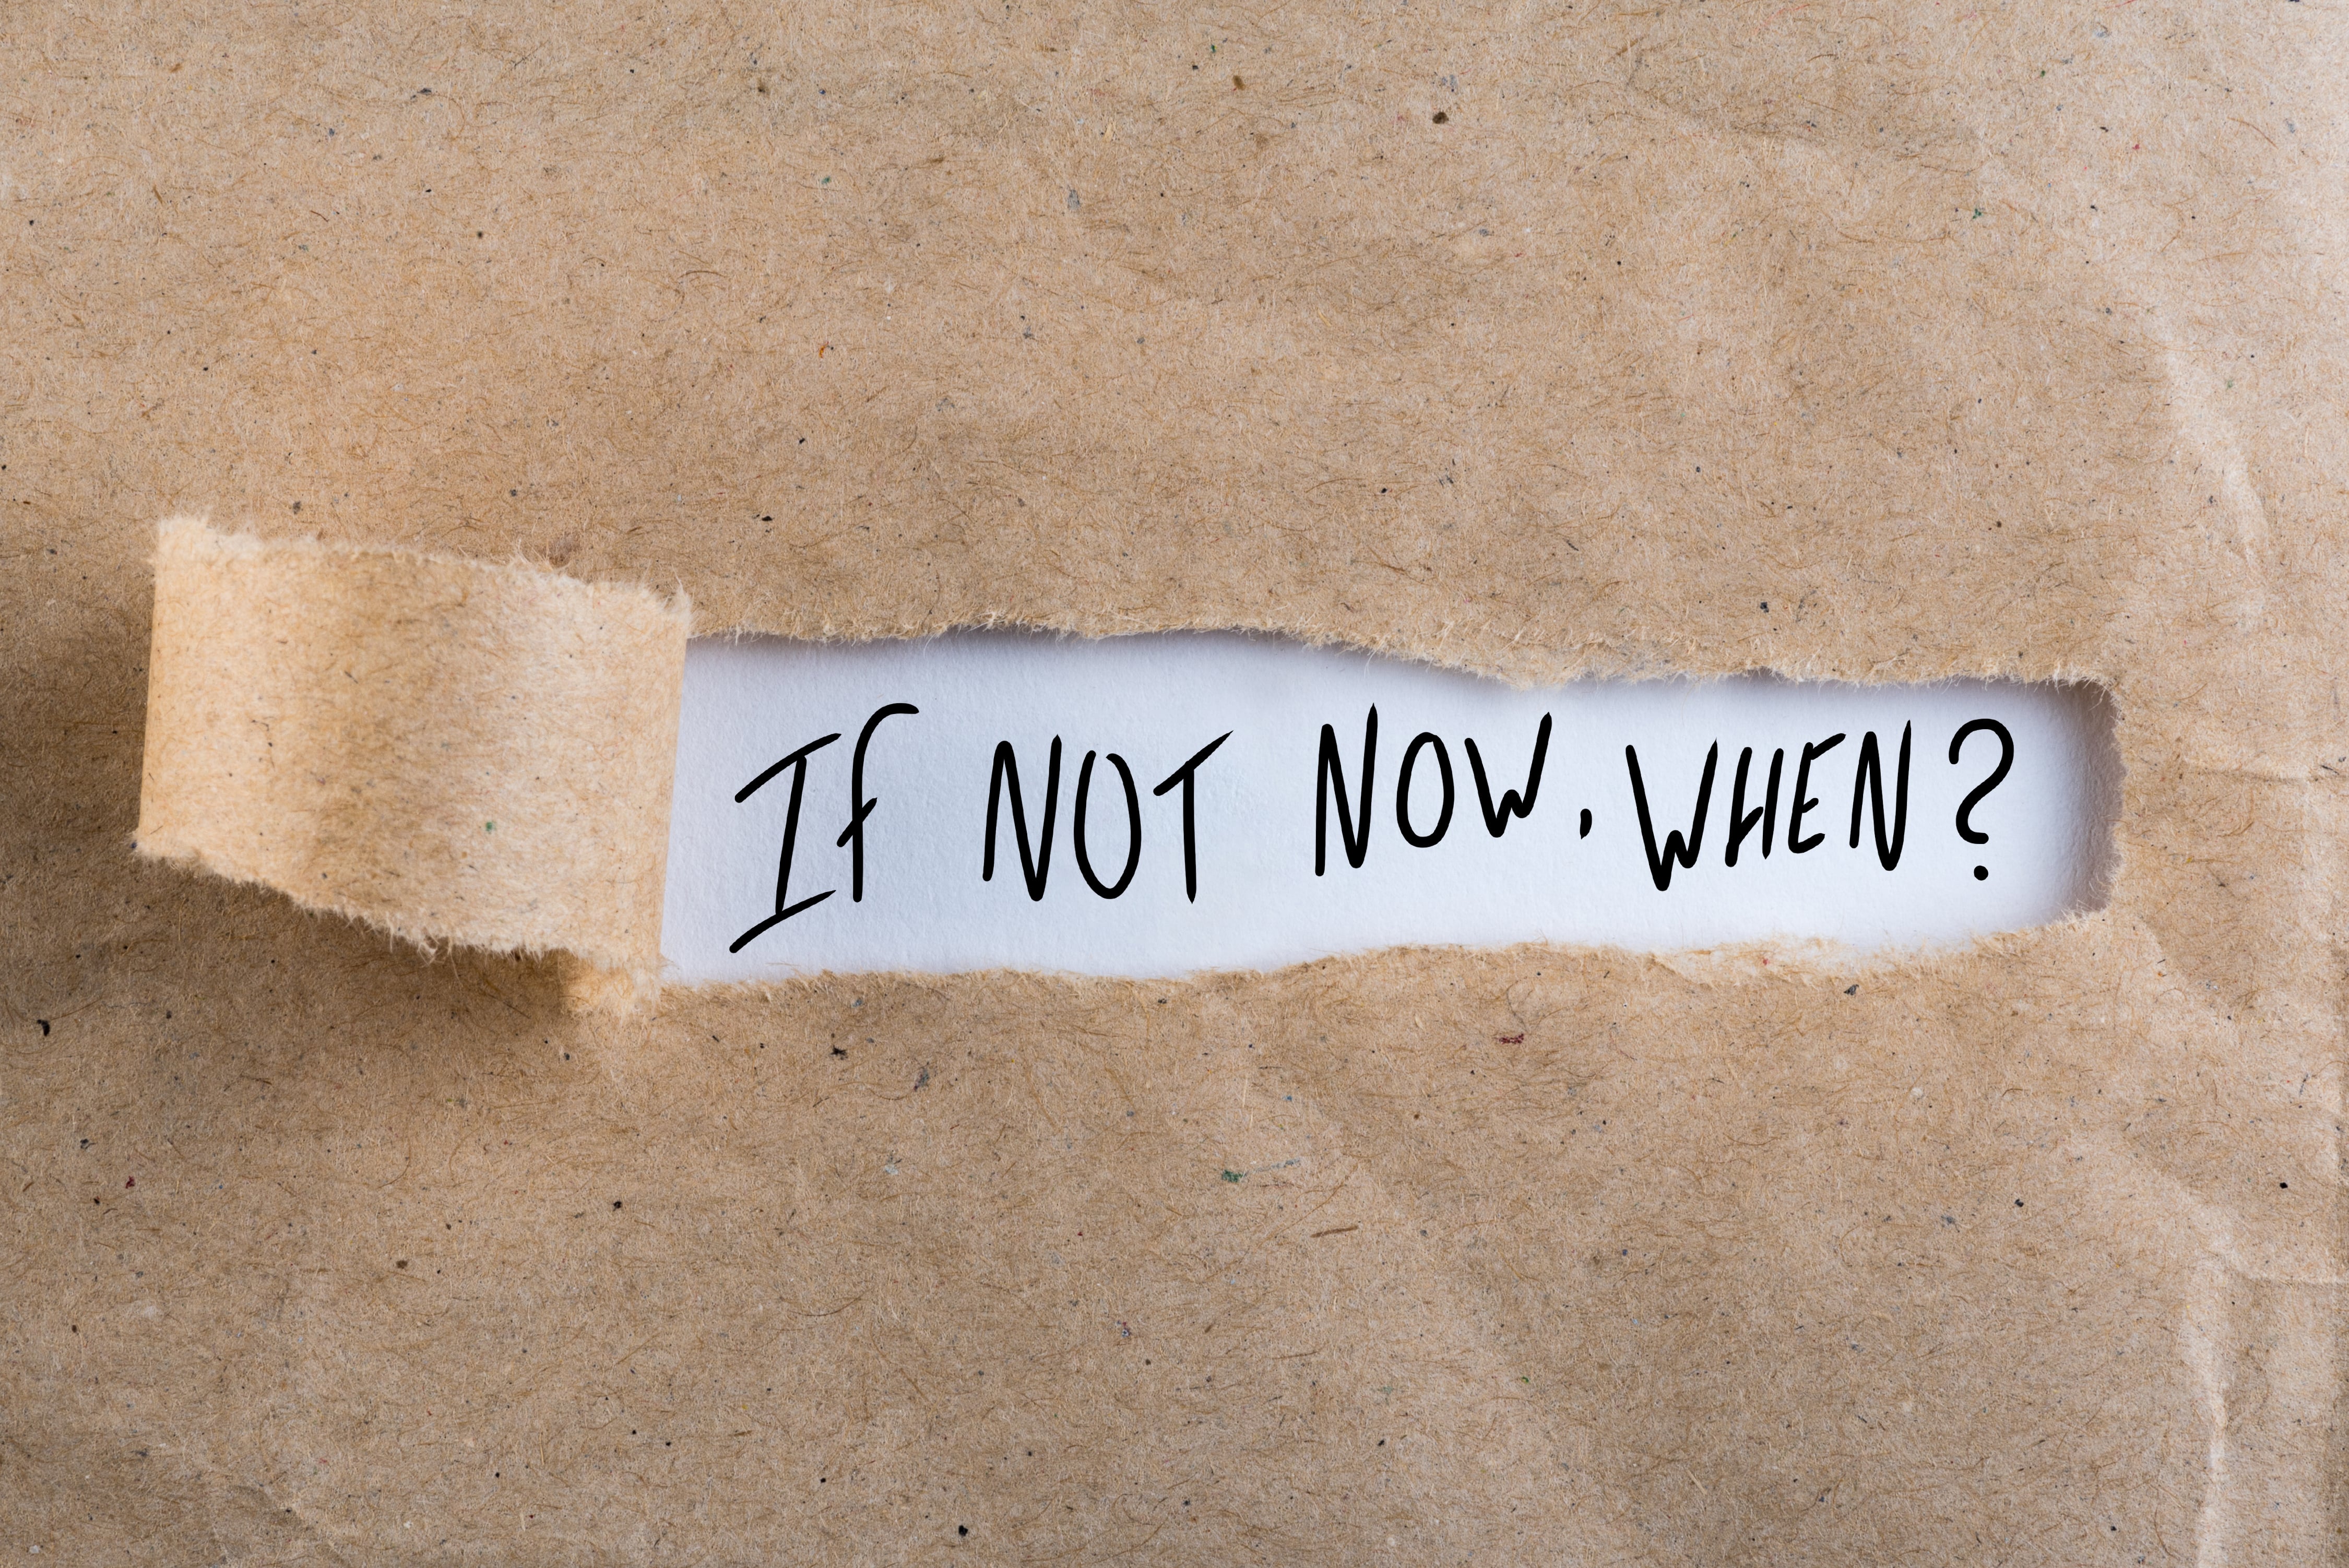 If NOT NOW, WHEN?